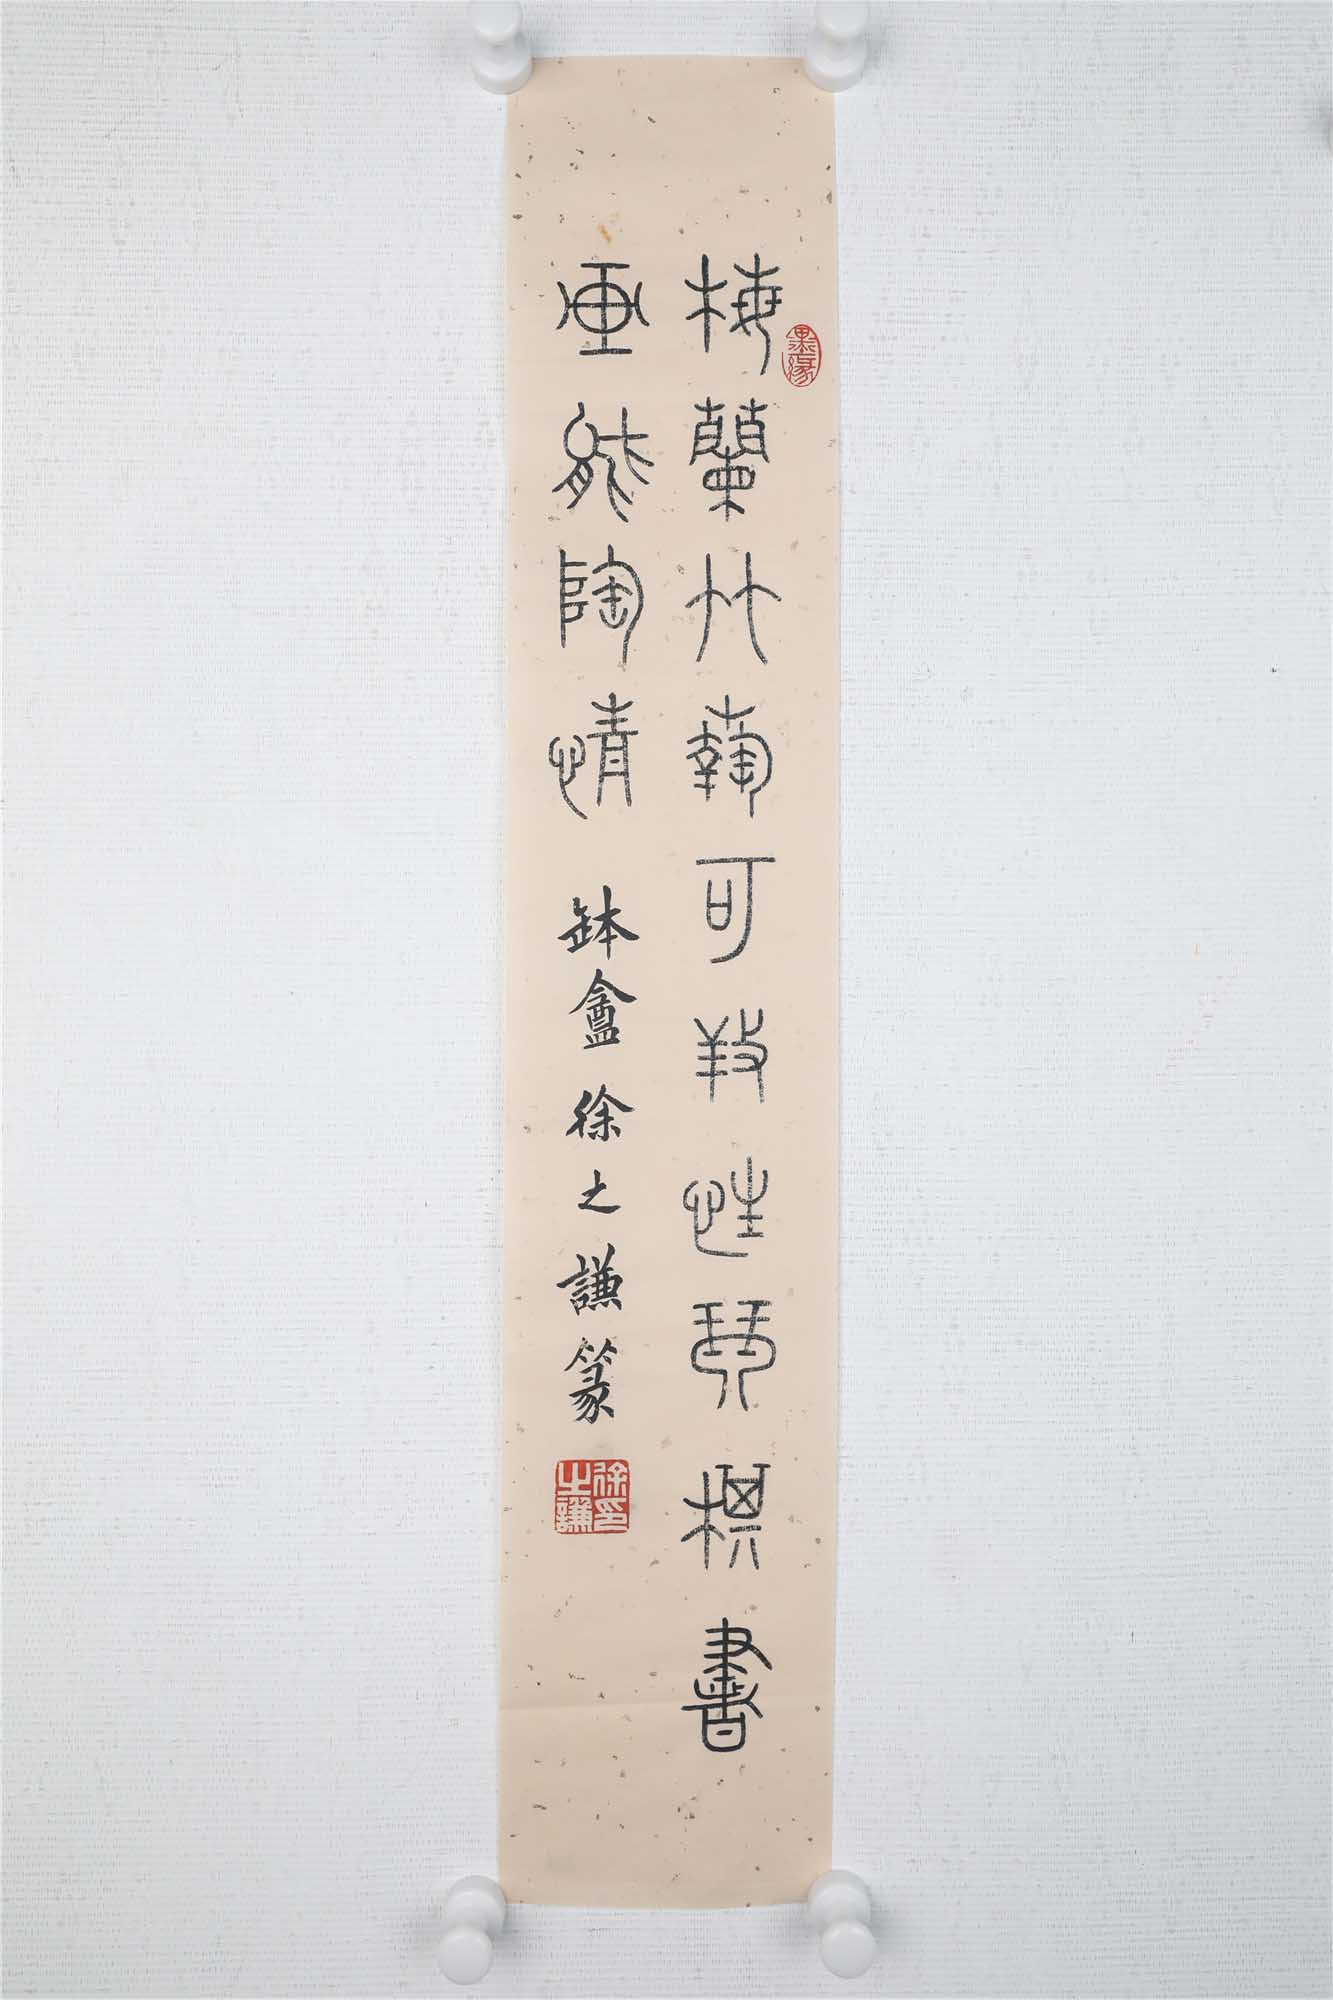 墨緣
梅蘭竹菊可養性琴棋書
畫能陶情
缽盦徐之謙篆
徐之謙印